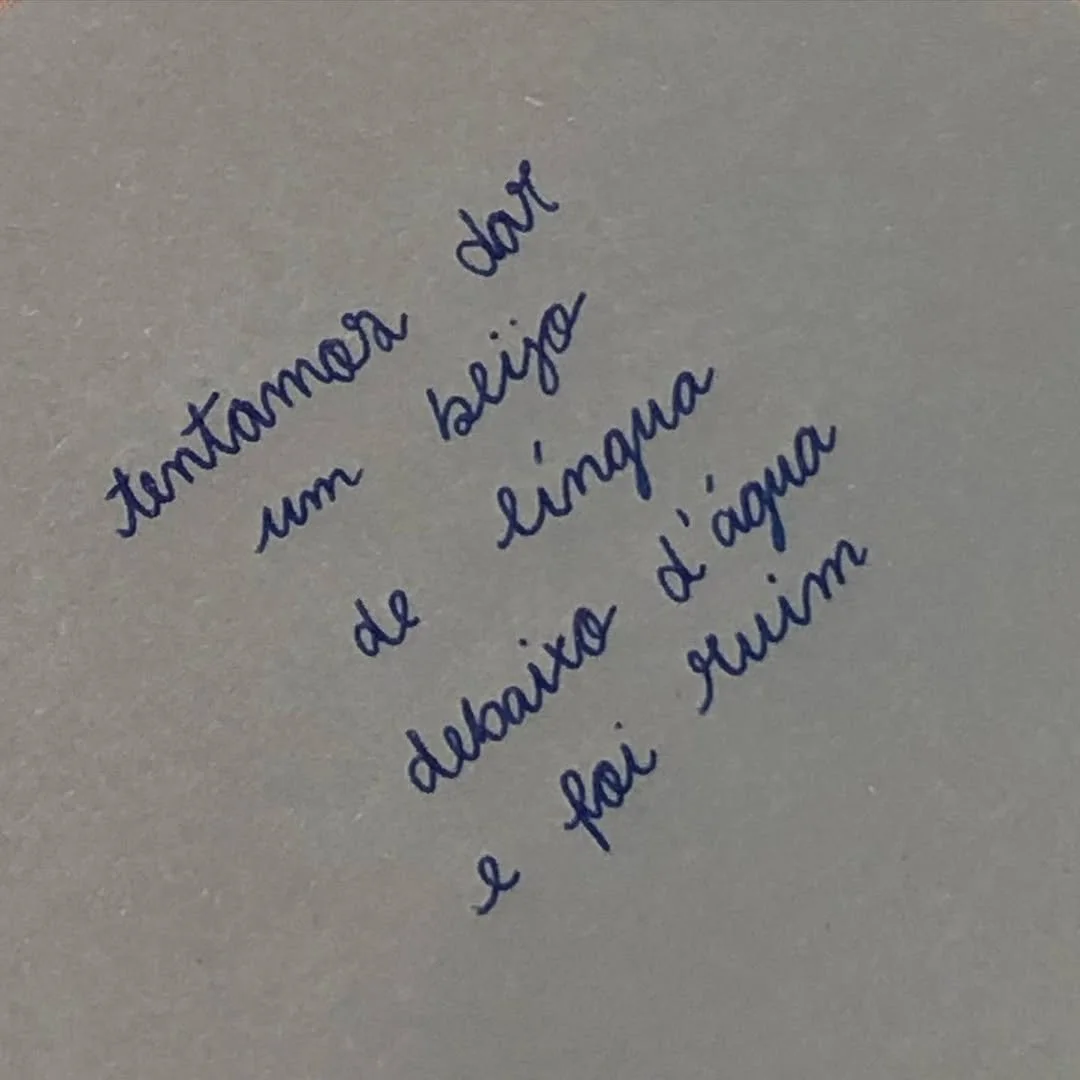 tentamos dar
um beijo
de língua
debaixo d'água
e foi ruim